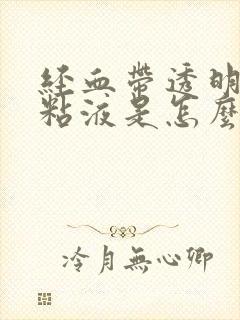 经血带透明
粘液是怎麼
冷月無心卿